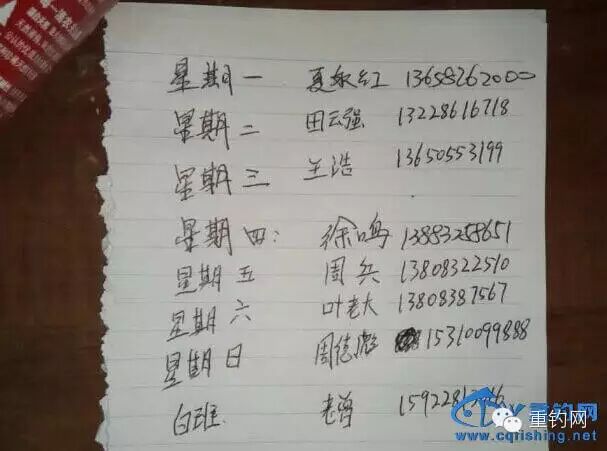 星期一 夏永红 13658262000
星期二 田云强 13228616718
星期三 王浩 13650553199
星期四: 徐鸣 13883258651
星期五 周兵 13808322510
星期六 叶老大 13808387567
星期日 周德彪 15310099888
白班 老曾
重钓网
重钓网
www.cqfishing.net